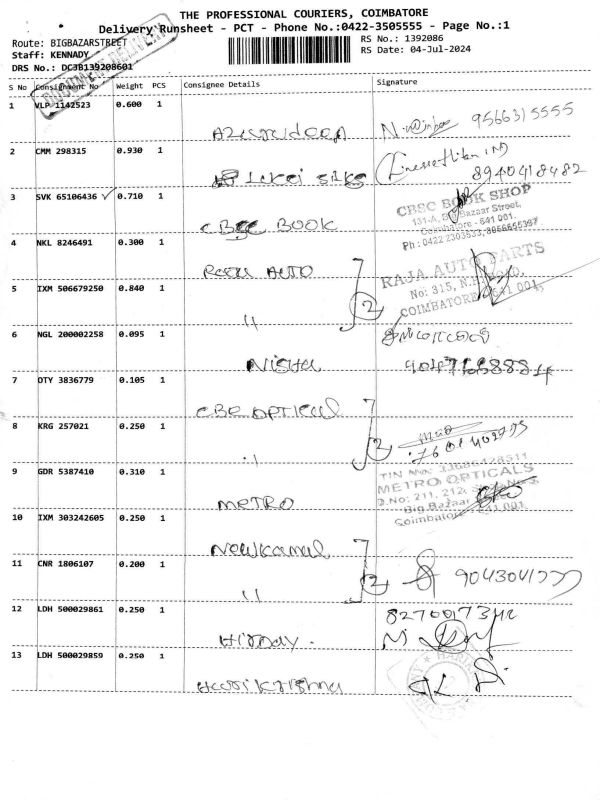 THE PROFESSIONAL COURIERS, COIMBATORE
Delivery Runsheet - PCT - Phone No.:0422-3505555 - Page No.:1
Route: BIGBAZARSTREET
RS No.: 1392086
Staff: KENNADY
RS Date: 04-Jul-2024
DRS No.: DCJB139208601
S No Consignment No Weight PCS Consignee Details Signature
1 VLP 1142523 0.600 1
9566315555
2 CMM 298315 0.930 1
8940418482
3 SVK 65106436 ✓ 0.710 1
CBSC BOOK
CBSC BOOK SHOP
131-A, Big Bazaar Street,
Coimbatore - 641 001.
4 NKL 8246491 0.300 1
AUTO
RAJA AUTO PARTS
5 IXM 506679250 0.840 1
"
2
No: 315, N.H. ROAD,
COIMBATORE - 641 001
6 NGL 200002258 0.095 1
Nisha
7 OTY 3836779 0.105 1
CBE OPTICAL
8 KRG 257021 0.250 1
"
2
9 GDR 5387410 0.310 1
METRO
METRO OPTICALS
D.No: 211, 212,
Big Bazaar
Coimbatore - 641 001
10 IXM 303242605 0.250 1
New Kamal
11 CNR 1806107 0.200 1
"
2
9043041777
12 LDH 500029861 0.250 1
13 LDH 500029859 0.250 1
Harikrishna